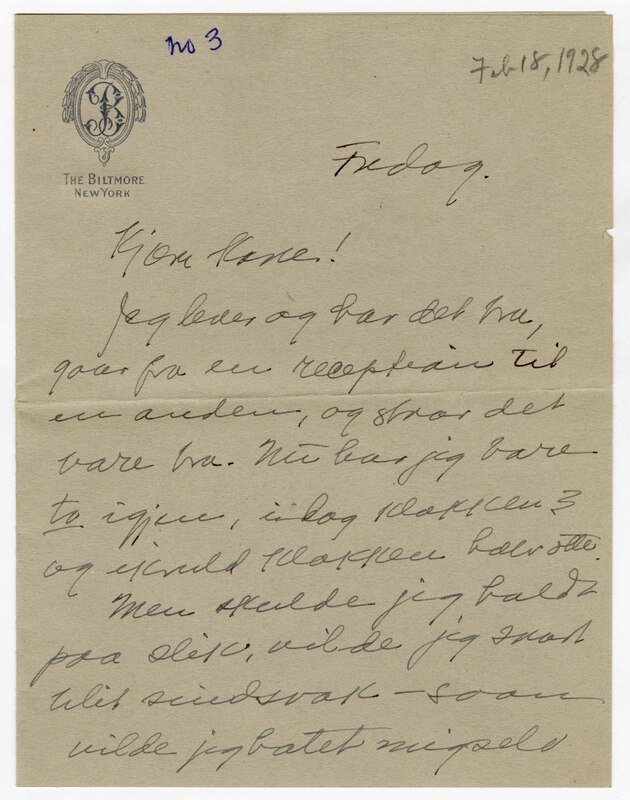 no 3
Feb 18, 1928
THE BILTMORE
NEW YORK
Fredag.
Kjære Kone!
Jeg lever og har det bra,
gaar fra en reception til
en anden, og det
bare bra. Nu har jeg bare
to igjen, idag klokken 3
og ikveld klokken halv otte.
Men skulde jeg holdt
paa slik, vilde jeg snart
blit sindsvak – saan
vilde jeg hatet mig selv